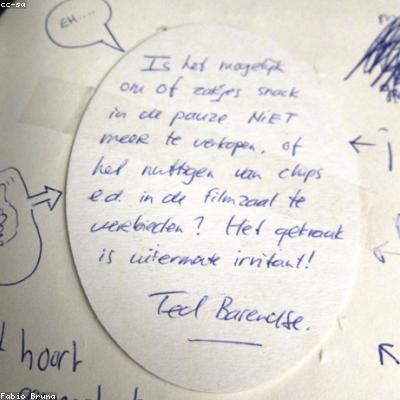 cc-sa
EH....
Is het mogelijk
om of zakjes snack
in de pauze NIET
meer te verkopen, of
het nuttigen van chips
e.d. in de filmzaal te
verbieden? Het gekraak
is uitermate irritant!
Ted Barendse.
hoort
Fabio Bruna